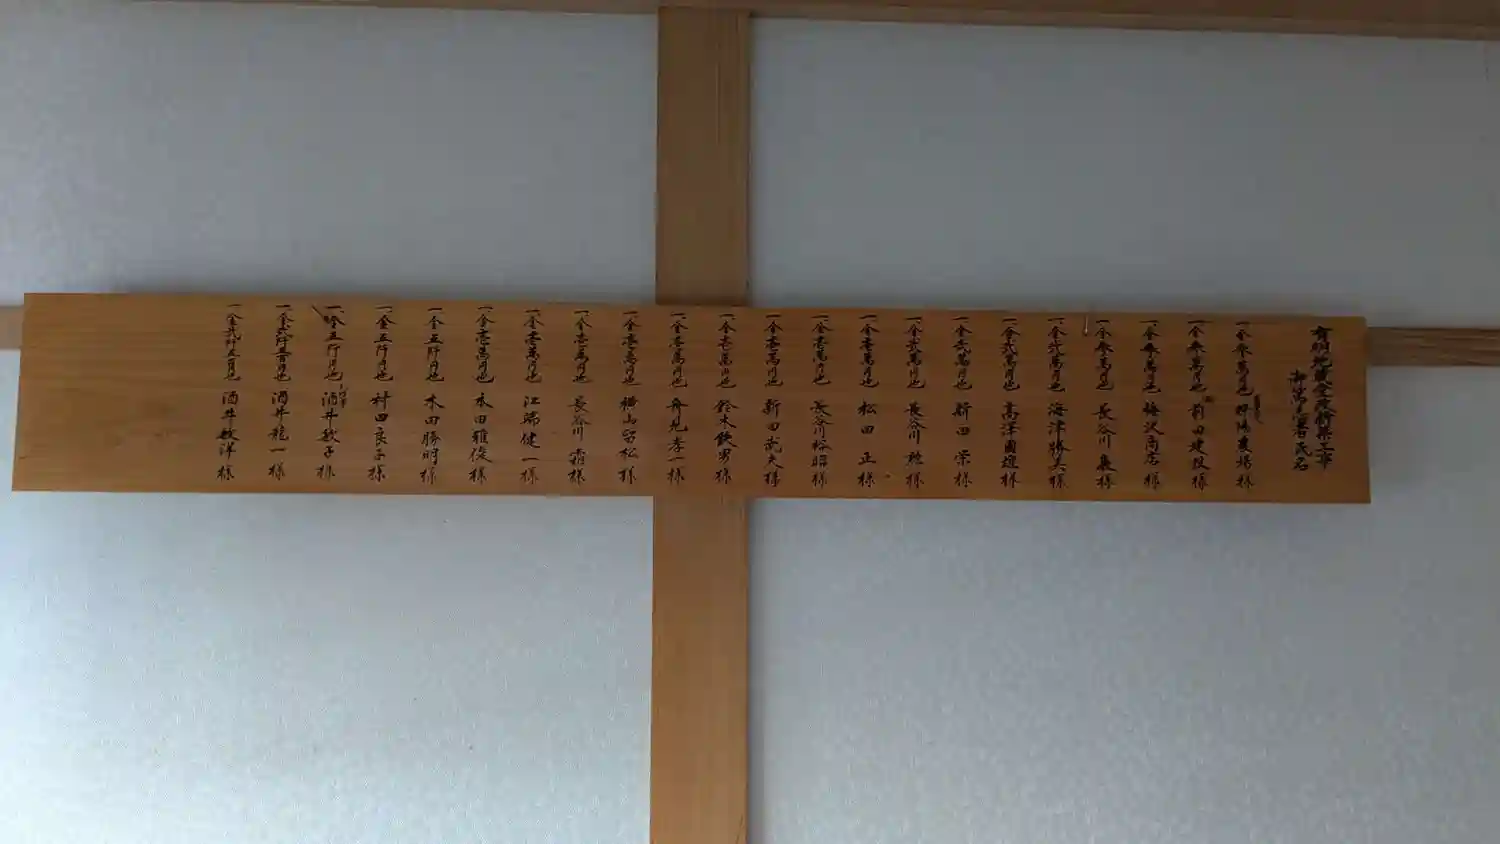 有明地蔵堂改築工事
御芳志者氏名
一金参萬円也 農場様
一金参萬円也 前田建設様
一金参萬円也 梅沢商店様
一金参萬円也 長谷川 様
一金弐萬円也 海津勝美様
一金弐萬円也 高澤國 様
一金弐萬円也 新田 栄様
一金弐萬円也 長谷川 様
一金壱萬円也 松田 正様
一金壱萬円也 長谷川裕昭様
一金壱萬円也 新田武夫様
一金壱萬円也 鈴木鉄男様
一金壱萬円也 舟見孝一様
一金壱萬円也 横山留松様
一金壱萬円也 長谷川 霜様
一金壱萬円也 江端健一様
一金壱萬円也 本田雅俊様
一金五阡円也 本田勝明様
一金五阡円也 村田良子様
一金五阡円也 酒井敏子様
一金弐阡五百円也 酒井龍一様
一金弐阡五百円也 酒井敏洋様